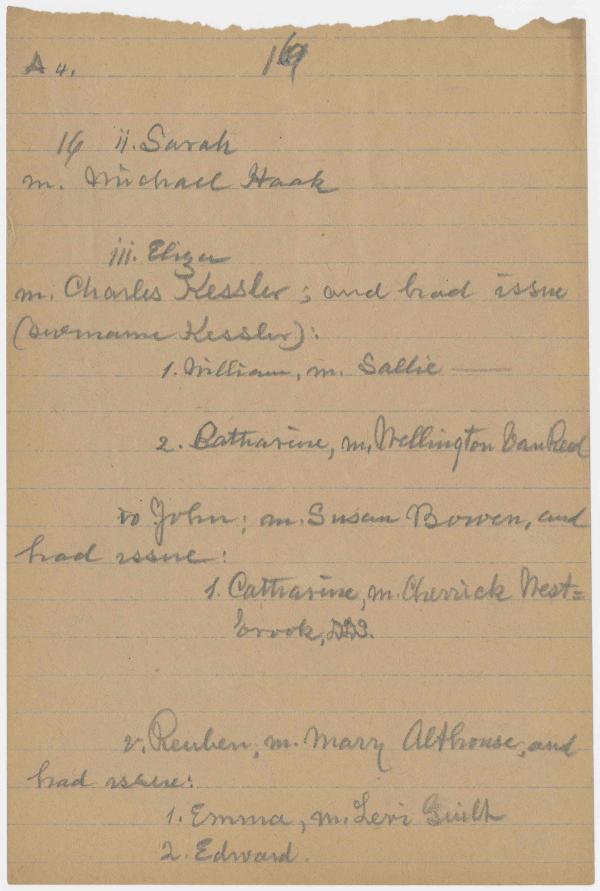 A 4.
16 ii. Sarah
m. Michael Haak
iii. Eliza
m. Charles Kessler; and had issue
(surname Kessler):
1. William, m. Sallie ——
2. Catharine, m. Wellington Van Reed
iv John; m. Susan Bowen, and
had issue:
1. Catharine, m. Cherrick West=
brook, DDS.
v. Reuben, m. Mary Althouse, and
had issue:
1. Emma, m. Levi
2. Edward.